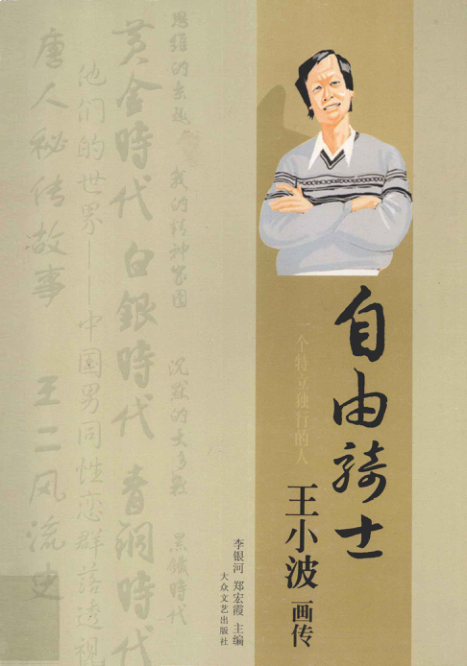 自由骑士
一个特立独行的人
王小波 画传
李银河 郑宏霞 主编
大众文艺出版社
思维的乐趣 我的精神家园 沉默的大多数 黑铁時代
黄金時代 白銀時代 青銅時代
他们的世界——中国男同性恋群落透視
唐人秘传故事 王二风流史